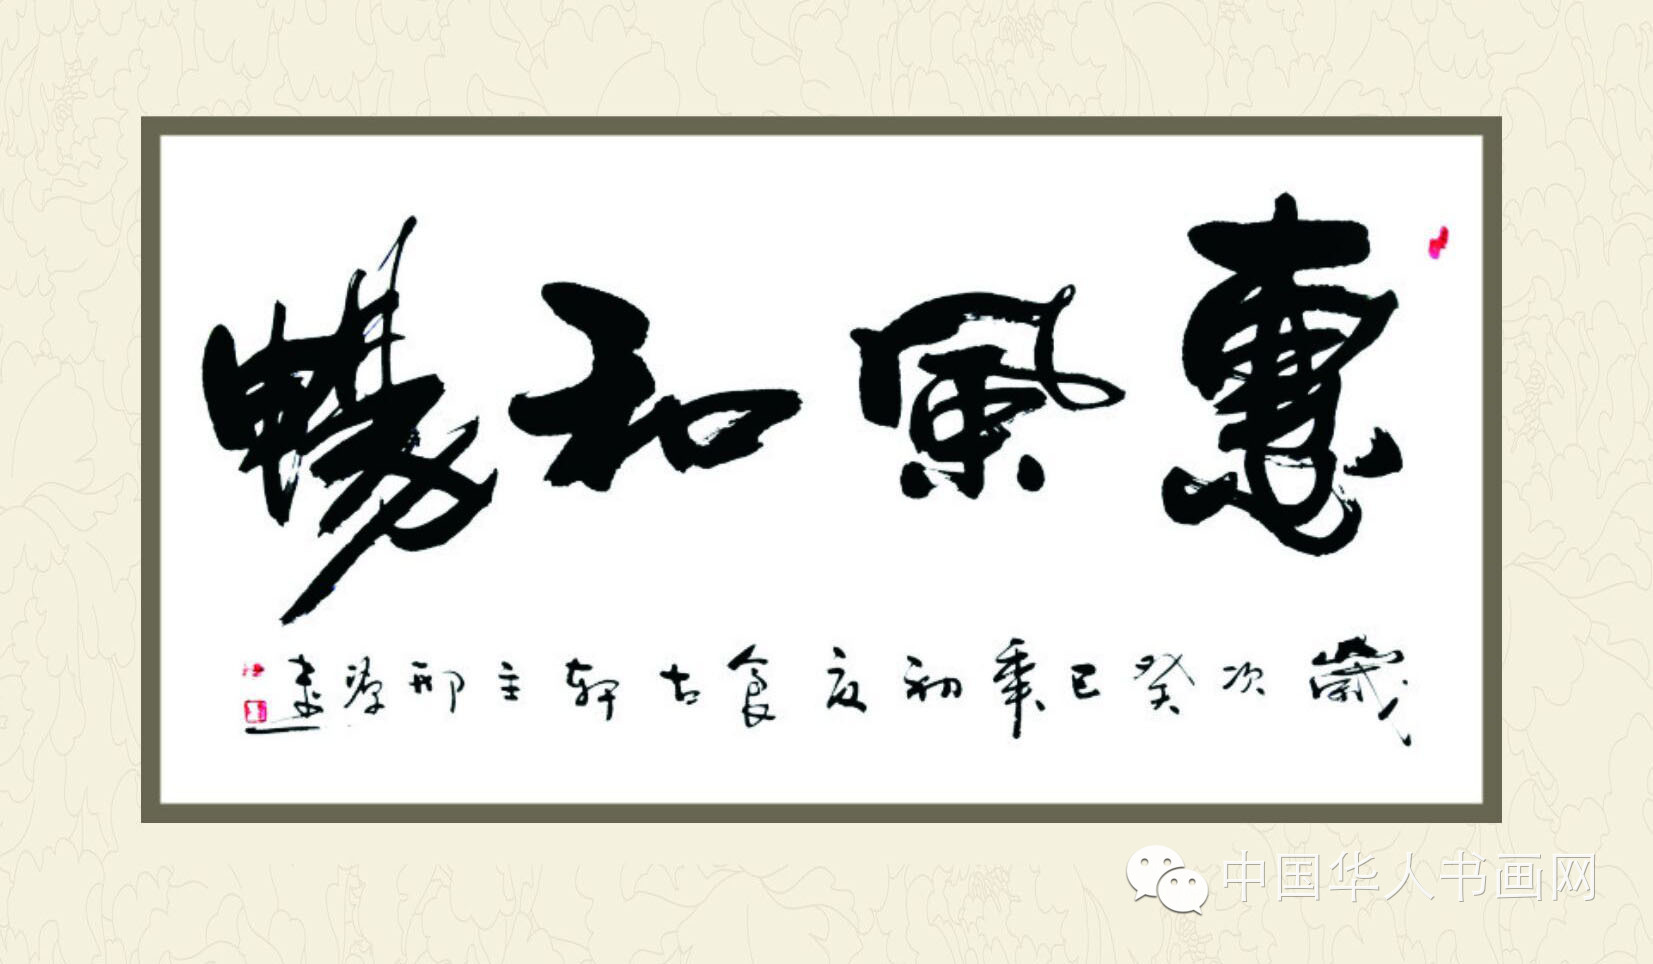 惠風和暢
歲次癸巳年初夏食古軒主邢深
中国华人书画网